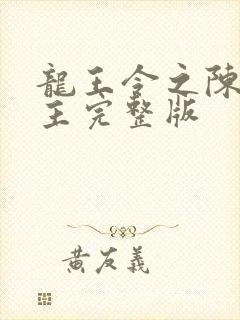 龍王令之陳
王完整版
黃友義